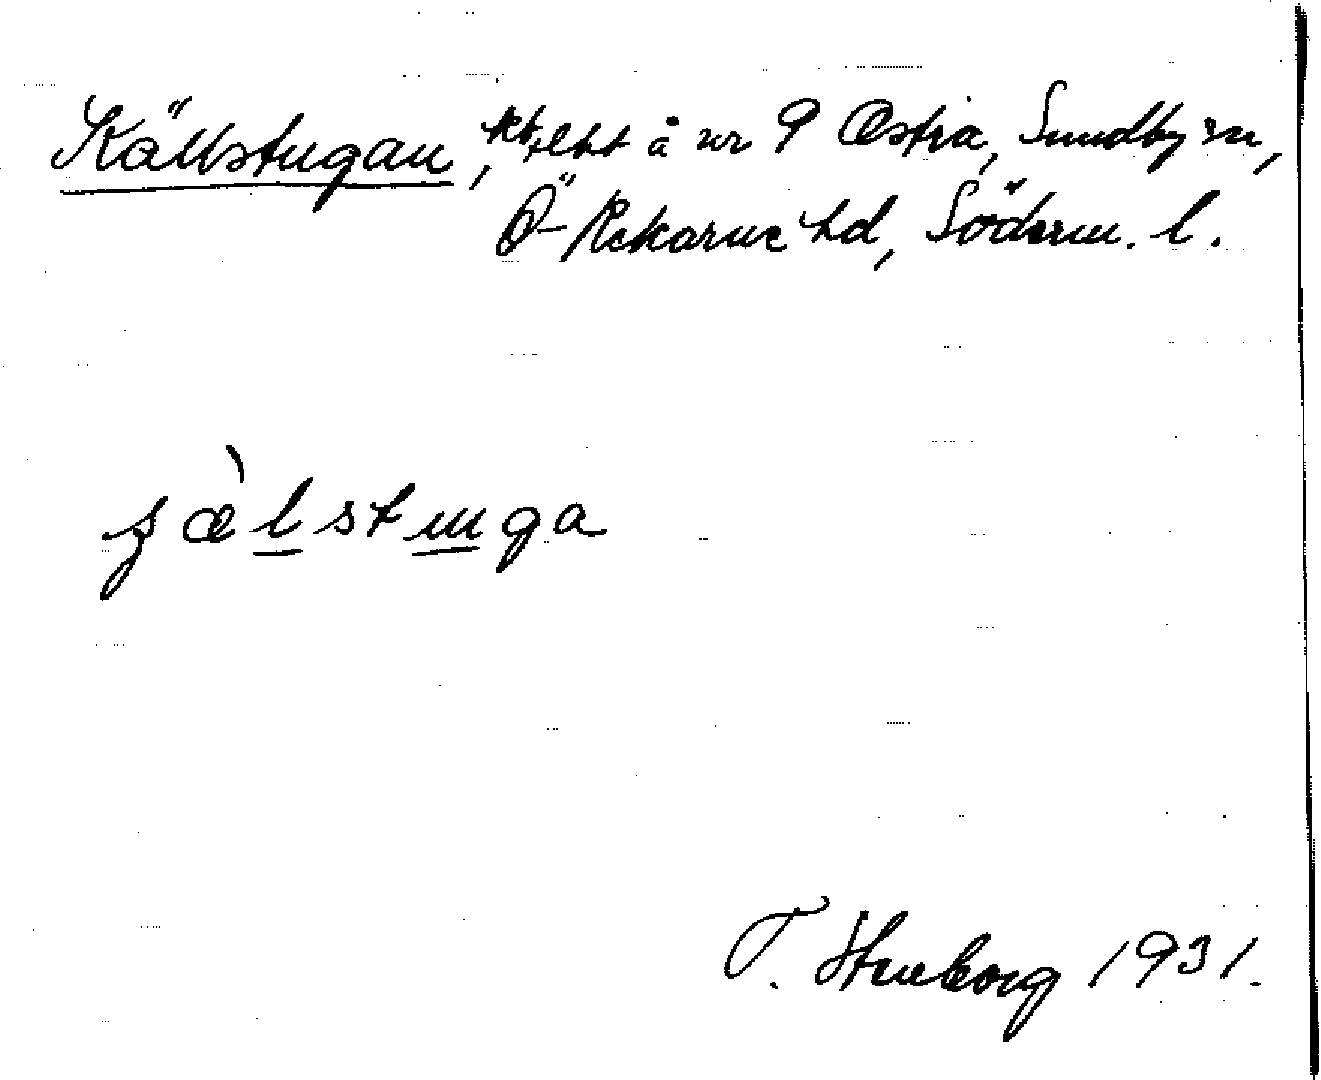 Källstugan, kt, lht å nr 9 Östra, Sundby sn,
Ö-Rekarne hd, Söderm. l.
ʒæ̀lstuga
T. Stenborg 1931.